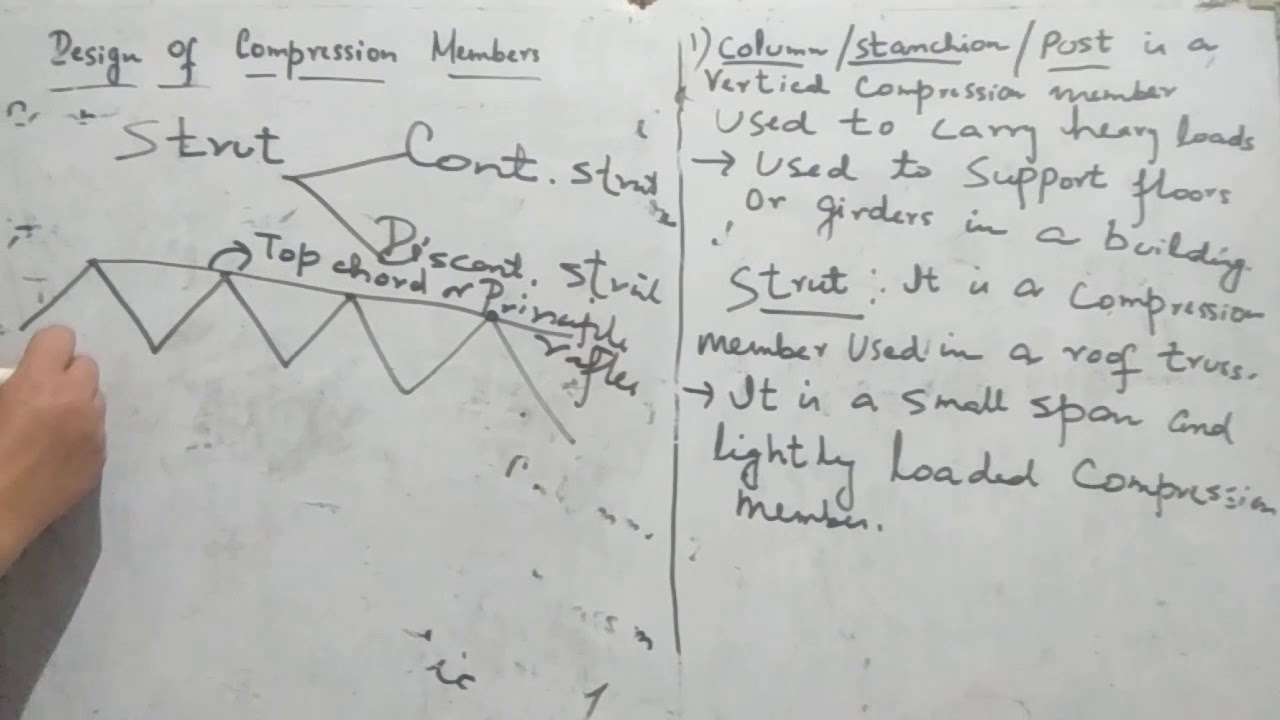 Design of Compression Members
Strut
Cont. strut
Discont. strut
Top chord or Principle
rafter
1) Column/stanchion/Post is a
vertical compression member
used to carry heavy loads
→ Used to support floors
or girders in a building.
Strut: It is a compression
member used in a roof truss.
→ It is a small span and
lightly loaded compression
member.
is